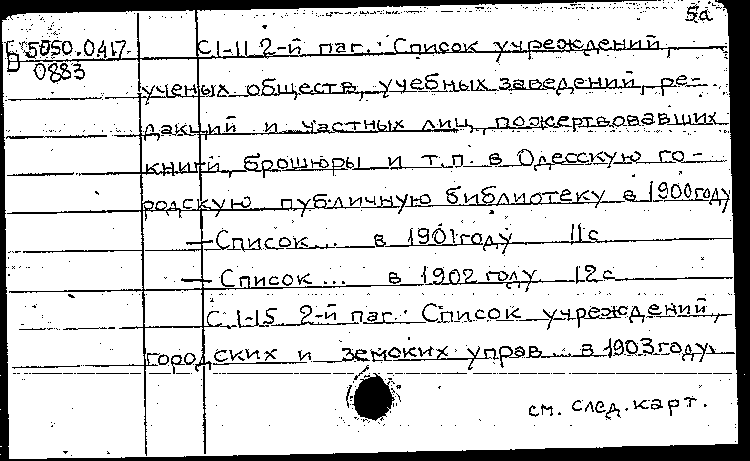 5а
Б 5050.0417 С 1-11 2-й паг.: Список учреждений,
0883
ученых обществ, учебных заведений, ре-
дакций и частных лиц, пожертвовавших
книги, брошюры и т.п. в Одесскую го-
родскую публичную библиотеку в 1900 году
— Список... в 1901 году 11 с
— Список... в 1902 году 12 с
С. 1-15 2-й паг.: Список учреждений,
городских и земских управ... в 1903 году.
см. след. карт.